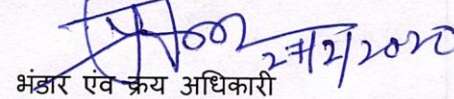 27/2/2020
भंडार एंव क्रय अधिकारी